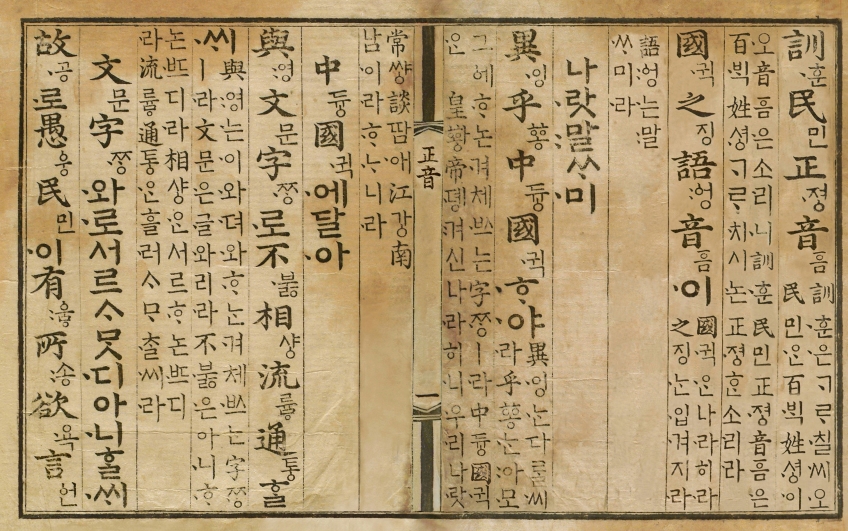 訓훈民민正져ᇰ音ᅙᅳᆷ
訓훈은ᄀᆞᄅᆞ칠씨오
民민ᄋᆞᆫ百ᄇᆡᆨ姓셔ᇰ이
오音ᅙᅳᆷ은소리니訓훈民민正져ᇰ音ᅙᅳᆷ은
百ᄇᆡᆨ姓셔ᇰᄀᆞᄅᆞ치시논正져ᇰᄒᆞᆫ소리라
國귁之징語ᅌᅥᆼ音ᅙᅳᆷ이
國귁ᄋᆞᆫ나라히라
之징ᄂᆞᆫ입겨지라
語ᅌᅥᆼ는말
ᄊᆞ미라
나랏말ᄊᆞ미
異잉乎ᅘᅩᆼ中듀ᇰ國귁ᄒᆞ야
異잉ᄂᆞᆫ다ᄅᆞᆯ씨
라乎ᅘᅩᆼᄂᆞᆫ아모
그ᅌᅦᄒᆞ논겨체ᄡᅳ는字ᄍᆞᆼㅣ라中듀ᇰ國귁
ᄋᆞᆫ皇ᅘᅪᇰ帝뎽겨신나라히니우리나랏
正音
一
常썅談땀애江강南
남이라ᄒᆞᄂᆞ니라
中듀ᇰ國귁에달아
與영文문字ᄍᆞᆼ로不부ᇙ相샤ᇰ流류ᇢ通토ᇰᄒᆞᆯ
ᄊᆡ
與영는이와뎌와ᄒᆞ는겨체ᄡᅳ는字ᄍᆞᆼ
ㅣ라文문은글와리라不부ᇙ은아니ᄒᆞ
논ᄠᅳ디라相샤ᇰᄋᆞᆫ서르ᄒᆞ논ᄠᅳ디
라流류ᇢ通토ᇰᄋᆞᆫ흘러ᄉᆞᄆᆞᄎᆞᆯ씨라
文문字ᄍᆞᆼ와로서르ᄉᆞᄆᆞᆺ디아니ᄒᆞᆯᄊᆡ
故공로愚ᅌᅮᆼ民민이有우ᇢ所송欲욕言언